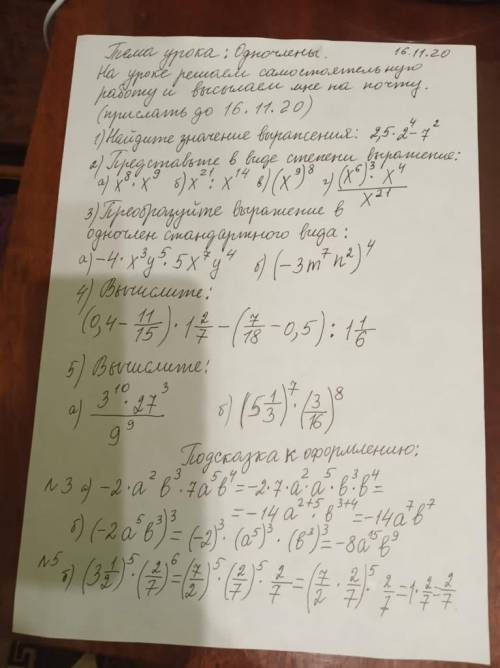 Тема урока: Одночлены. 16.11.20
На уроке решаем самостоятельную
работу и высылаем мне на почту.
(прислать до 16.11.20)
1) Найдите значение выражения: 2,5·2⁴-7²
2) Представьте в виде степени выражение:
а) x⁸·x⁹ б) x²¹:x¹⁴ в) (x⁹)⁸ г) (x⁶)³·x⁴/x²¹
3) Преобразуйте выражение в
одночлен стандартного вида:
а) -4·x³y⁵·5x⁷y⁴ б) (-3m⁷n²)⁴
4) Вычислите:
(0,4-11/15)·1 2/7-(7/18-0,5):1 1/6
5) Вычислите:
а) 3¹⁰·27³/9⁹ б) (5 1/3)⁷·(3/16)⁸
Подсказка к оформлению:
№3 а) -2·a²b³·7a⁵b⁴=-2·7·a²·a⁵·b³·b⁴=
=-14a²⁺⁵·b³⁺⁴=-14a⁷b⁷
б) (-2a⁵b³)³=(-2)³·(a⁵)³·(b³)³=-8a¹⁵b⁹
№5 б) (3 1/2)⁵·(2/7)⁶=(7/2)⁵·(2/7)⁵·2/7=(7/2·2/7)⁵·2/7=1·2/7=2/7